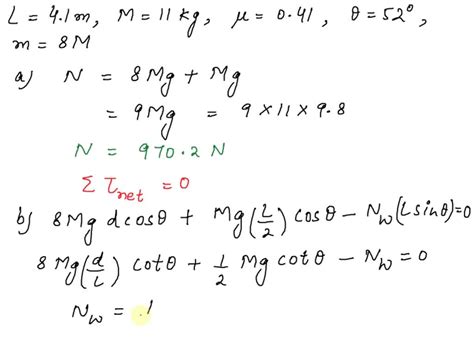 L = 4.1m, M = 11 kg, μ = 0.41, θ = 52°,
m = 8M
a) N = 8Mg + Mg
= 9Mg = 9 × 11 × 9.8
N = 970.2 N
Σ τnet = 0
b) 8Mg d cosθ + Mg(L/2) cosθ − Nw(L sinθ) = 0
8Mg(d/L) cotθ + 1/2 Mg cotθ − Nw = 0
Nw =